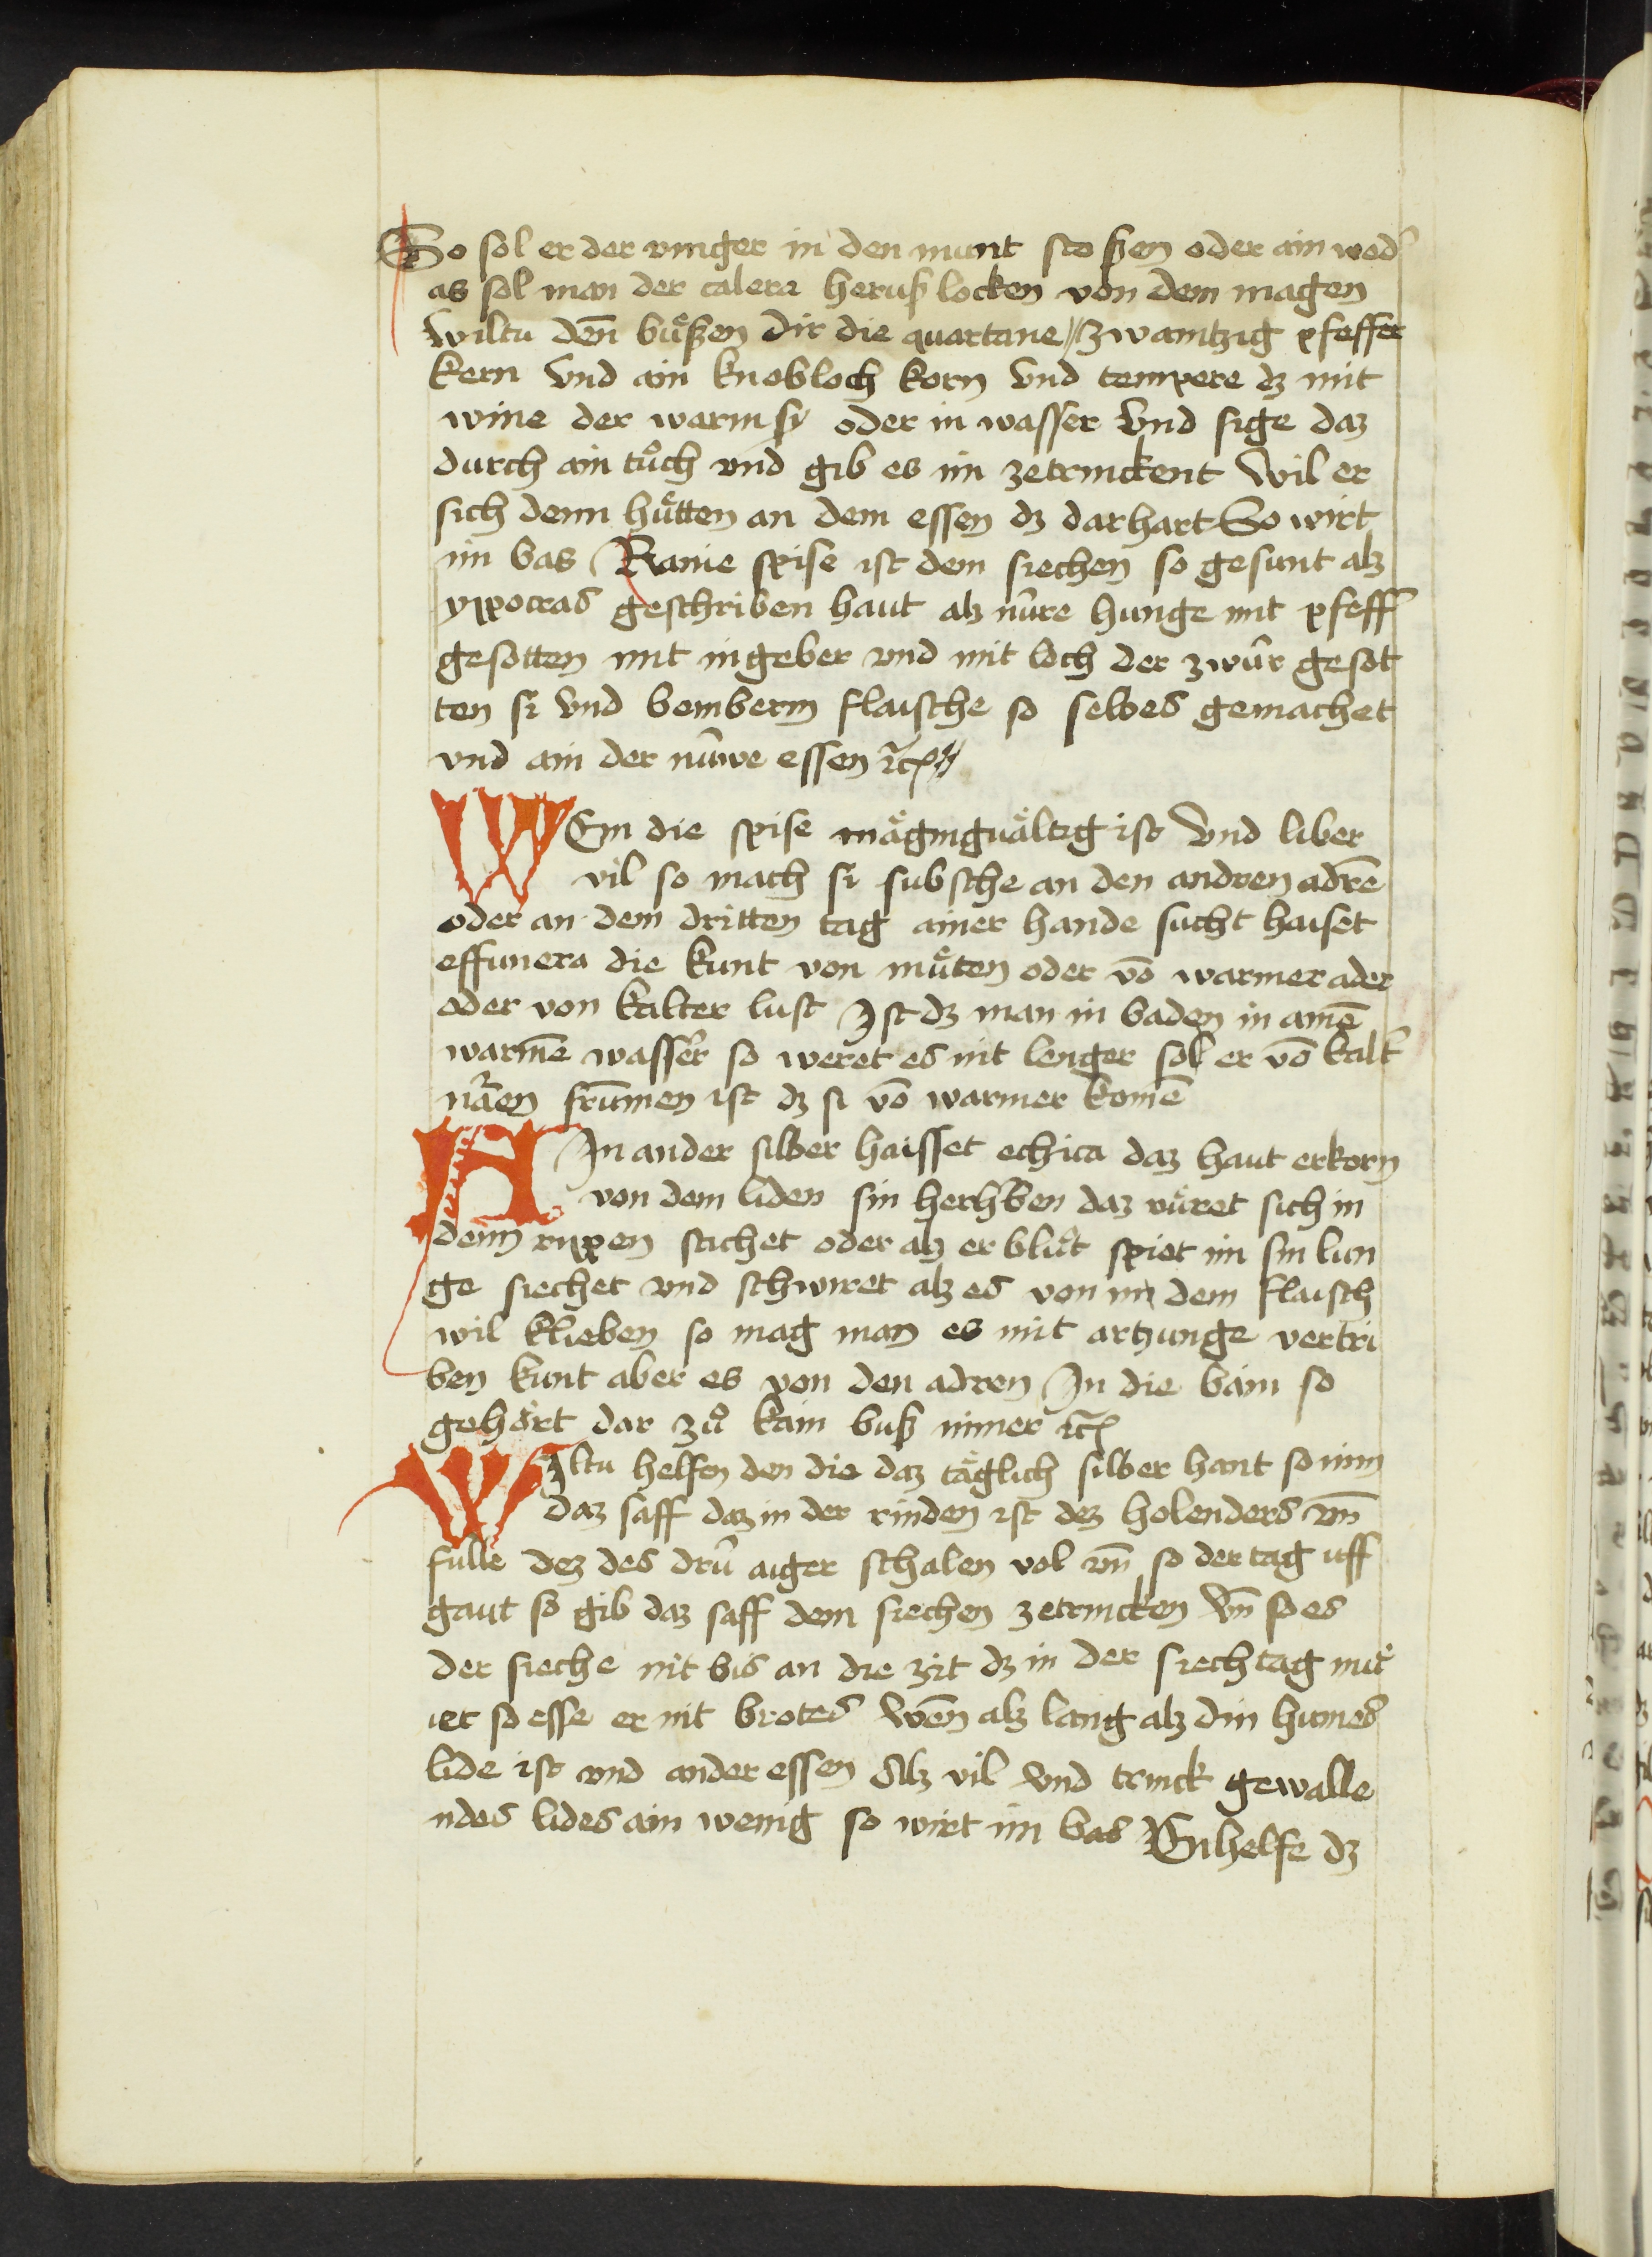 So sol er der vinger in den munt sto ßen oder ain wed᷑
as sol man der calera heruß locken von dem magen
Wiltu deñ buͤßen dir die quartane // zwaintzig pfeffer
kern Vnd ain knobloch korn Vnd tempere dz mit
wine der warm sy oder in wasser Vnd sige daz
durch ain tuͦch vnd gib es im zetrinckent Wil er
sich denn huͤtten an dem essen dz dar hart So wirt
im bas Ranie spise ist dem siechen so gesunt alz
ypocras geschriben haut alz nûre hunge mit pfeff᷑
gesotten mit ingeber vnd mit loch der zwûr gesot
ten si Vnd bemberin flaische so selbes gemachet
vnd ain der nûwe essen ꝛc̃
WEm die spise maͤgnguaͤltig ist Vnd liber
vil so mach si subsche an den andren adrē
oder an dem dritten tag ainer hande sucht haiset
effimera die kunt von muͤten oder vō warmer ader
oder von kalter lust Jst dz man in baden in ainē
warmē wasser so weret es nit lenger sol er vō kalt᷑
 frumen ist dz si vō warmer komē
AJn ander silber haisset echica daz haut erkorn
von dem liden sin herhben daz ruͤret sich in
denn rippen stichet oder alz er bluͤt spiet im sin lun
ge siechet vnd schwiret alz es von im dem flaisch
wil klieben so mag man es mit artzunge vertri
ben kunt aber es von den adren Jn die bain so
gehoͤrt dar zuͦ kain buß nimer ꝛc̃
WJltu helfen den die daz taͤglich silber hant so nim
daz saff daz in der rinden ist dez holenders vñ
fulle dez des drû aiger schalen vol vñ so der tag uff
gaut so gib daz saff dem siechen zetrincken Vñ so es
der sieche nit bis an die zit dz in der siechtag muͤ
iet so esse er nit brotes Wēn alz lang alz din humes
lide ist vnd ander essen Alz vil Vnd trinck gewalle
ndes lides ain wenig so wirt im bas Gihelfe dz